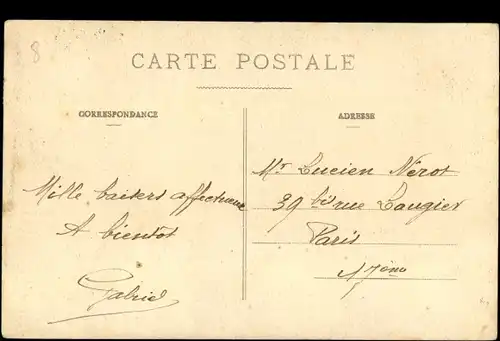 8
CARTE POSTALE
CORRESPONDANCE
Mille baisers affectueux
A bientot
Gabriel
ADRESSE
Mr Lucien Nerot
39 bis rue Laugier
Paris
17ème